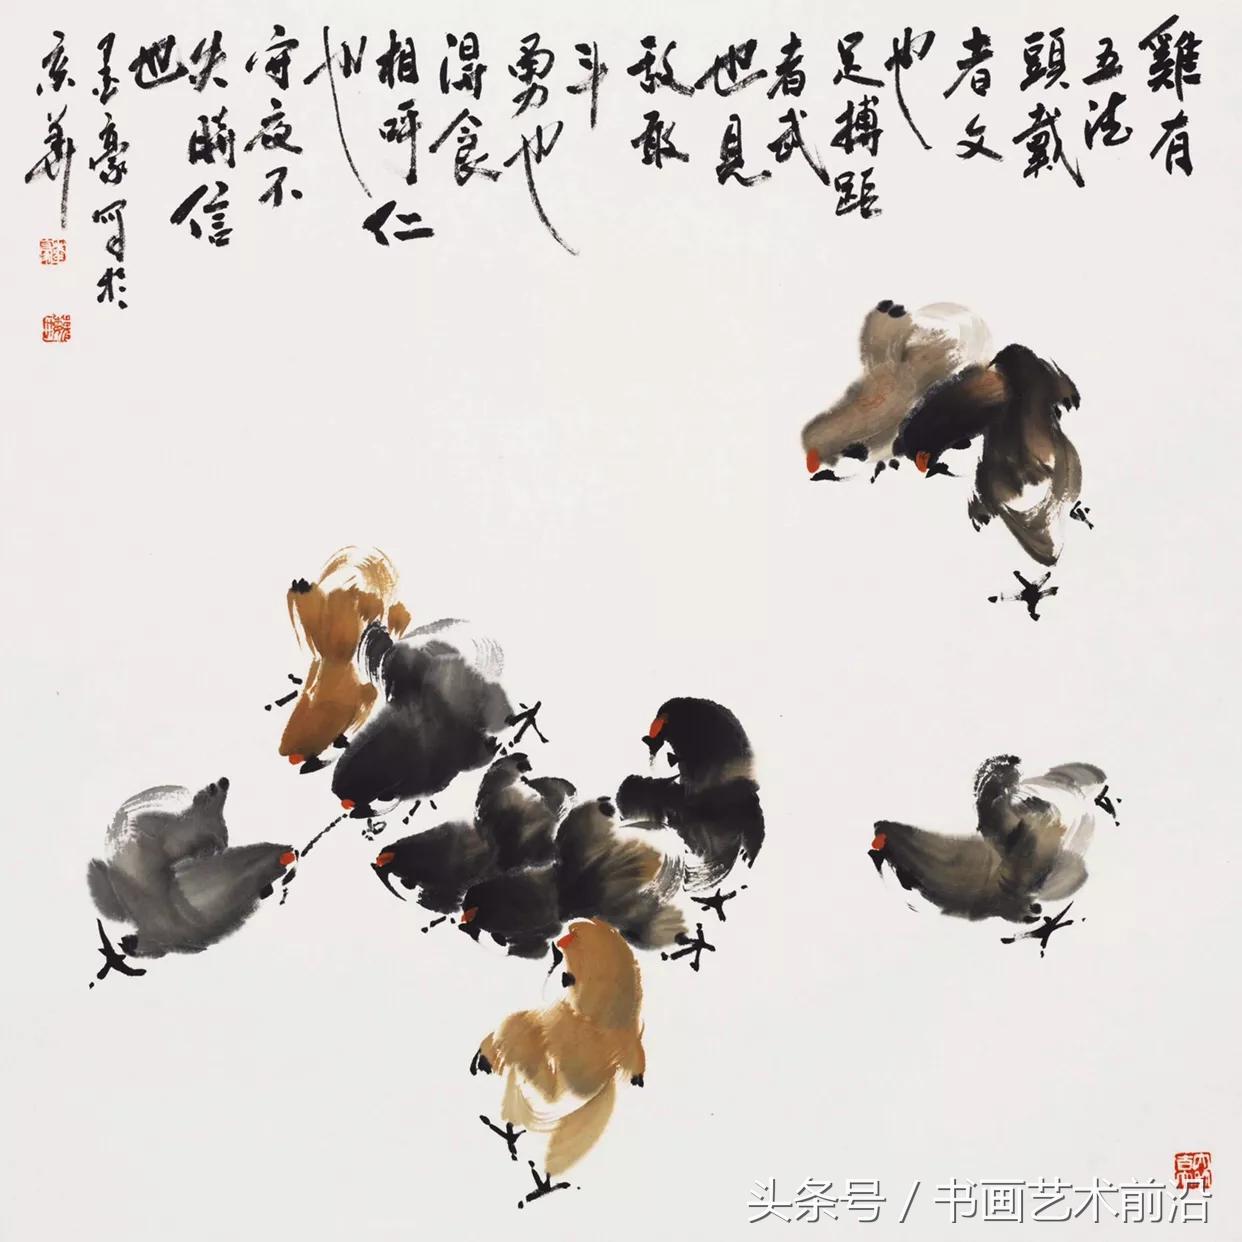 雞有
五德
頭戴
者文
也
足搏距
者武
也見
敌敢
斗
勇也
得食
相呼仁
也
守夜不
失時信
也
豪写於
京華
头条号 / 书画艺术前沿